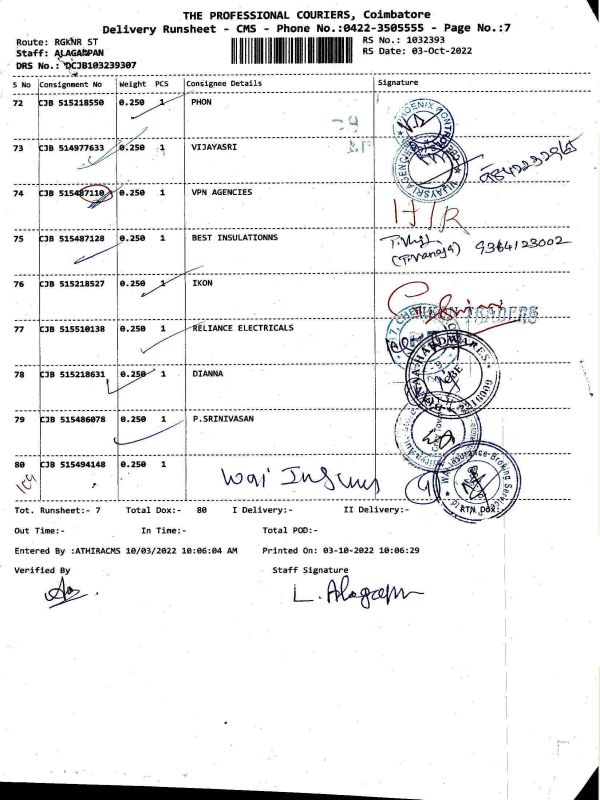 THE PROFESSIONAL COURIERS, Coimbatore
Delivery Runsheet - CMS - Phone No.:0422-3505555 - Page No.:7
Route: RGKNR ST RS No.: 1032393
Staff: ALAGAPPAN RS Date: 03-Oct-2022
DRS No.: DCJB103239307
S No Consignment No Weight PCS Consignee Details Signature
72 CJB 515218550 0.250 1 PHON
73 CJB 514977633 0.250 1 VIJAYASRI
74 CJB 515487110 0.250 1 VPN AGENCIES
H/R
75 CJB 515487128 0.250 1 BEST INSULATIONNS
(T.Vanaja) 9364123002
76 CJB 515218527 0.250 1 IKON
77 CJB 515510138 0.250 1 RELIANCE ELECTRICALS
78 CJB 515218631 0.250 1 DIANNA
79 CJB 515486078 0.250 1 P.SRINIVASAN
80 CJB 515494148 0.250 1
Tot. Runsheet:- 7 Total Dox:- 80 I Delivery:- II Delivery:- RTN Dox:-
Out Time:- In Time:- Total POD:-
Entered By :ATHIRACMS 10/03/2022 10:06:04 AM Printed On: 03-10-2022 10:06:29
Verified By Staff Signature
L. Alagappn